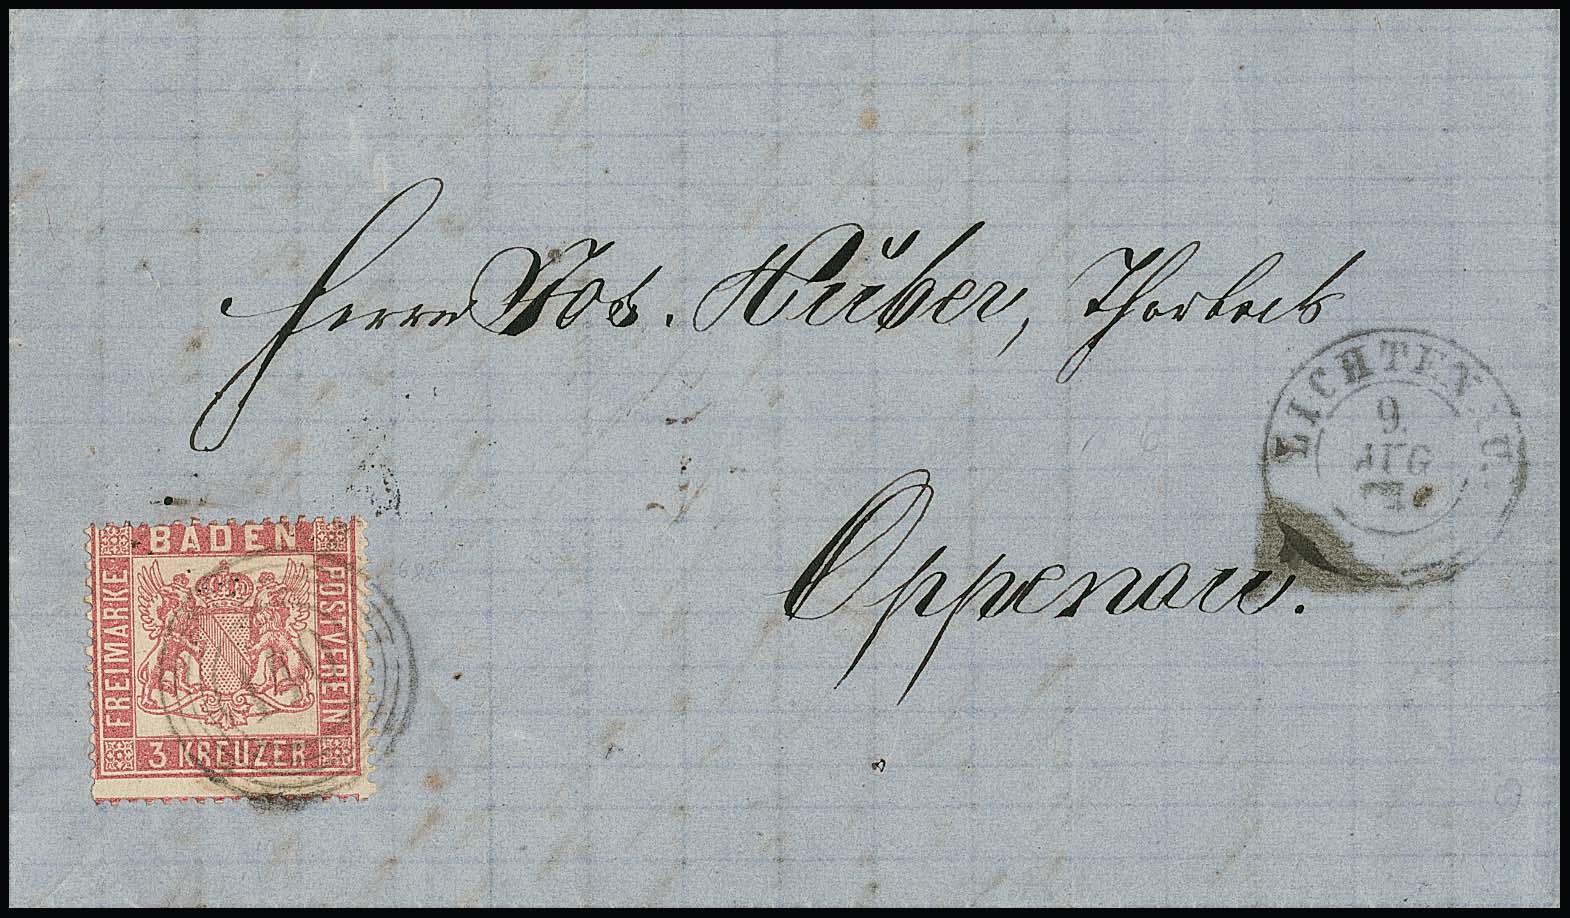 Herrn Jos. Huber, Thorbeck
Oppenau.
LICHTENAU.
9.
AUG
BADEN
FREIMARKE
POSTVEREIN
3 KREUZER